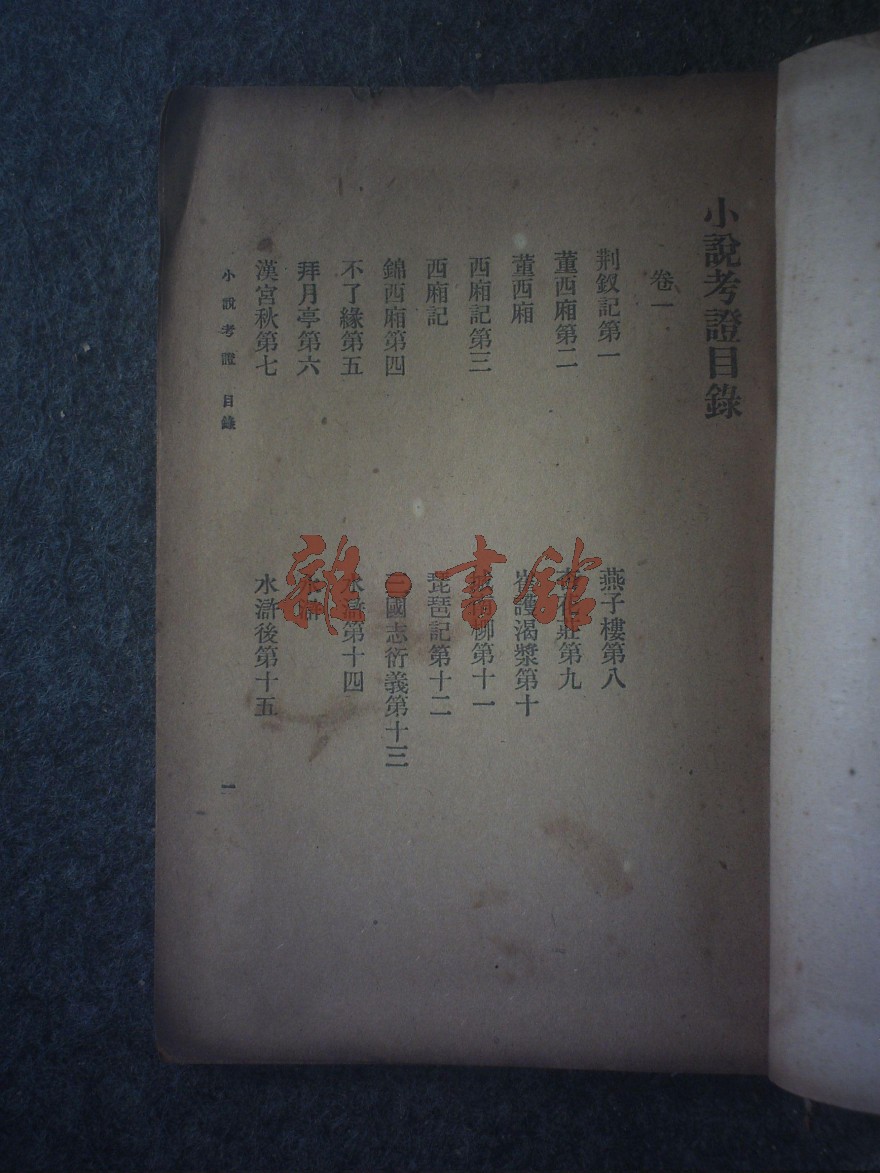 小說考證目錄
卷一
荆釵記第一
董西廂第二
董西廂
西廂記第三
西廂記
錦西廂第四
不了緣第五
拜月亭第六
漢宮秋第七
燕子樓第八
莊第九
崔護渴漿第十
柳第十一
琵琶記第十二
三國志衍義第十三
水滸第十四
水滸
水滸後第十五
小說考證 目錄
一
雜·書館